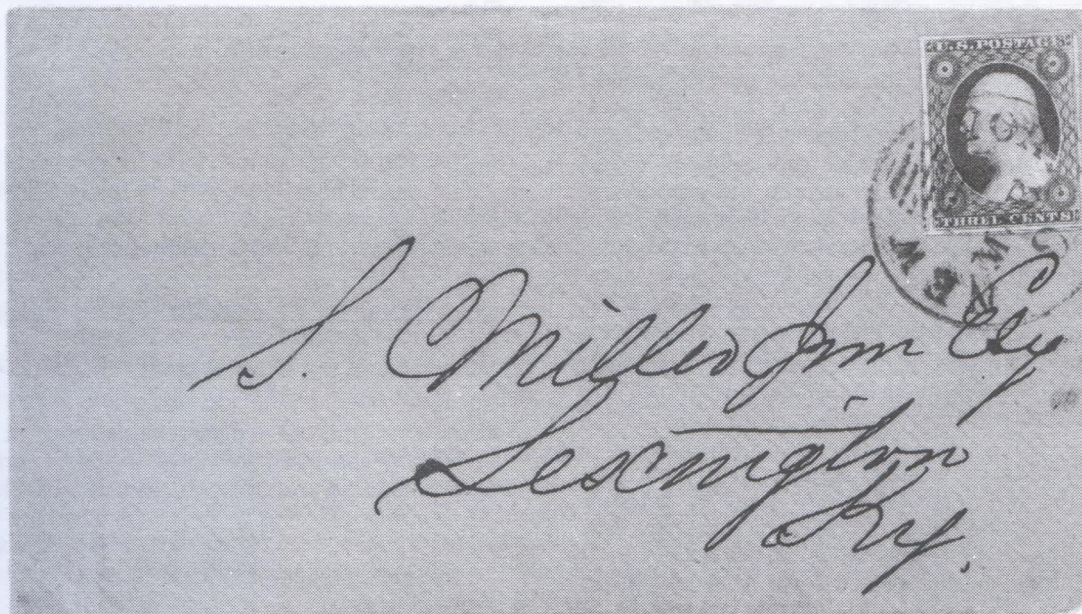 U.S. POSTAGE
THREE CENTS
S. Miller Junr Esq
Lexington
Ky.